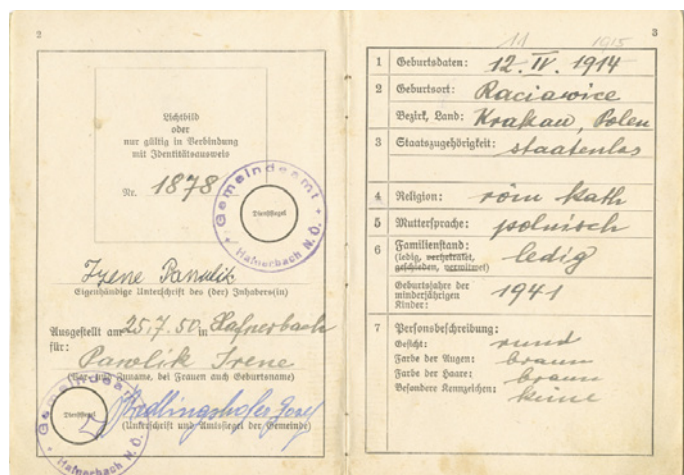 2
Lichtbild
oder
nur gültig in Verbindung
mit Identitätsausweis
Nr. 1878
Gemeindeamt
Dienstsiegel
Hafnerbach N.Ö.
Irene Pawlik
Eigenhändige Unterschrift des (der) Inhabers(in)
Ausgestellt am 25.7.50 in Hafnerbach
für:
Pawlik Irene
(Vor- und Zuname, bei Frauen auch Geburtsname)
Gemeindeamt
Dienstsiegel
Hafnerbach N.Ö.
Josef
(Unterschrift und Amtssiegel der Gemeinde)
3
11 1915
1 Geburtsdaten: 12. IV. 1914
2 Geburtsort: Raciawice
Bezirk, Land: Krakau, Polen
3 Staatszugehörigkeit: staatenlos
4 Religion: röm kath
5 Muttersprache: polnisch
6 Familienstand: ledig
(ledig, verheiratet,
geschieden, verwitwet)
Geburtsjahre der
minderjährigen
Kinder: 1941
7 Personsbeschreibung:
Gesicht: rund
Farbe der Augen: braun
Farbe der Haare: braun
Besondere Kennzeichen: keine